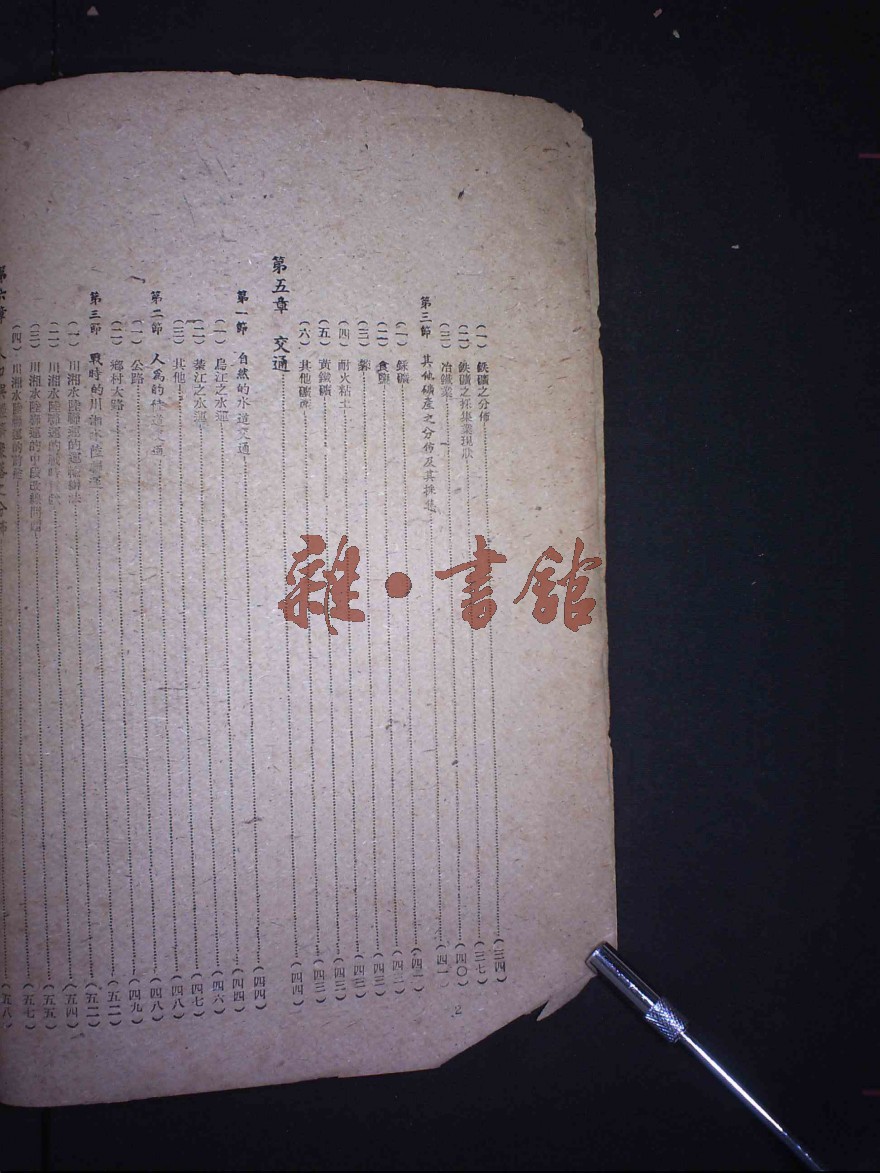 (一) 鉄礦之分佈……(三四)
(二) 鉄礦之採集業現狀……(三七)
(三) 冶鐵業……(四〇)
第三節 其他礦產之分佈及其採集……(四一)
(一) 煤礦……(四一)
(二) 食鹽……(四二)
(三)……(四三)
(四) 耐火粘土……(四三)
(五) 黃鐵礦……(四三)
(六) 其他礦產……(四三)
第五章 交通……(四四)
第一節 自然的水道交通……(四四)
(一) 烏江之水運……(四四)
(二) 綦江之水運……(四六)
(三) 其他……(四七)
第二節 人爲的 道交通……(四八)
(一) 公路……(四八)
(二) 鄉村大路……(四九)
第三節 戰時的川湘水陸聯運……(五二)
(一) 川湘水陸聯運的運輸辦法……(五二)
(二) 川湘水陸聯運的……(五四)
(三) 川湘水陸聯運的 改善問題……(五五)
(四) 川湘水陸聯運的……(五七)
第六章 人口 聚落之分佈……(五八)
2
雜·書館